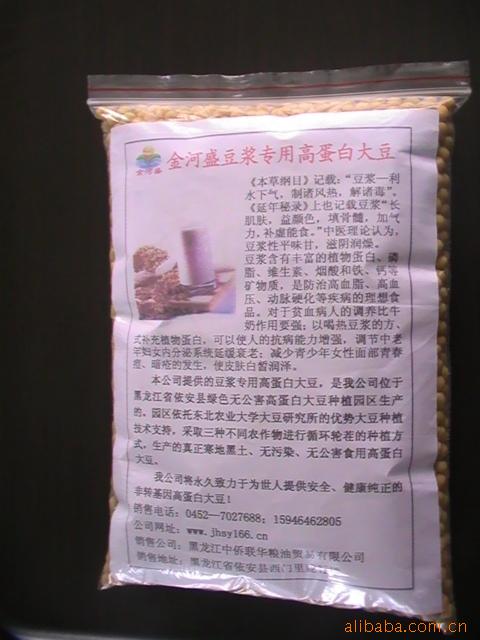 金河盛
金河盛豆浆专用高蛋白大豆
《本草纲目》记载:“豆浆—利
水下气，制诸风热，解诸毒”。
《延年秘录》上也记载豆浆“长
肌肤，益颜色，填骨髓，加气
力，补虚能食。”中医理论认为，
豆浆性平味甘，滋阴润燥。
豆浆含有丰富的植物蛋白、磷
脂、维生素、烟酸和铁、钙等
矿物质，是防治高血脂、高血
压、动脉硬化等疾病的理想食
品。对于贫血病人的调养比牛
奶作用要强；以喝热豆浆的方、
式补充植物蛋白，可以使人的抗病能力增强，调节中老
年妇女内分泌系统延缓衰老；减少青少年女性面部青春
痘、暗疮的发生，使皮肤白皙润泽。
本公司提供的豆浆专用高蛋白大豆，是我公司位于
黑龙江省依安县绿色无公害高蛋白大豆种植园区生产
的。园区依托东北农业大学大豆研究所的优势大豆种植
技术支持，采取三种不同农作物进行循环轮茬的种植方
式，生产的真正寒地黑土、无污染、无公害食用高蛋白
大豆。
我公司将永久致力于为世人提供安全、健康纯正的
非转基因高蛋白大豆！
销售电话：0452—7027688；15946462805
公司网址：www.jhsy166.cn
销售公司：黑龙江中侨联华粮油贸易有限公司
销售地址：黑龙江省依安县西门里
alibaba.com.cn